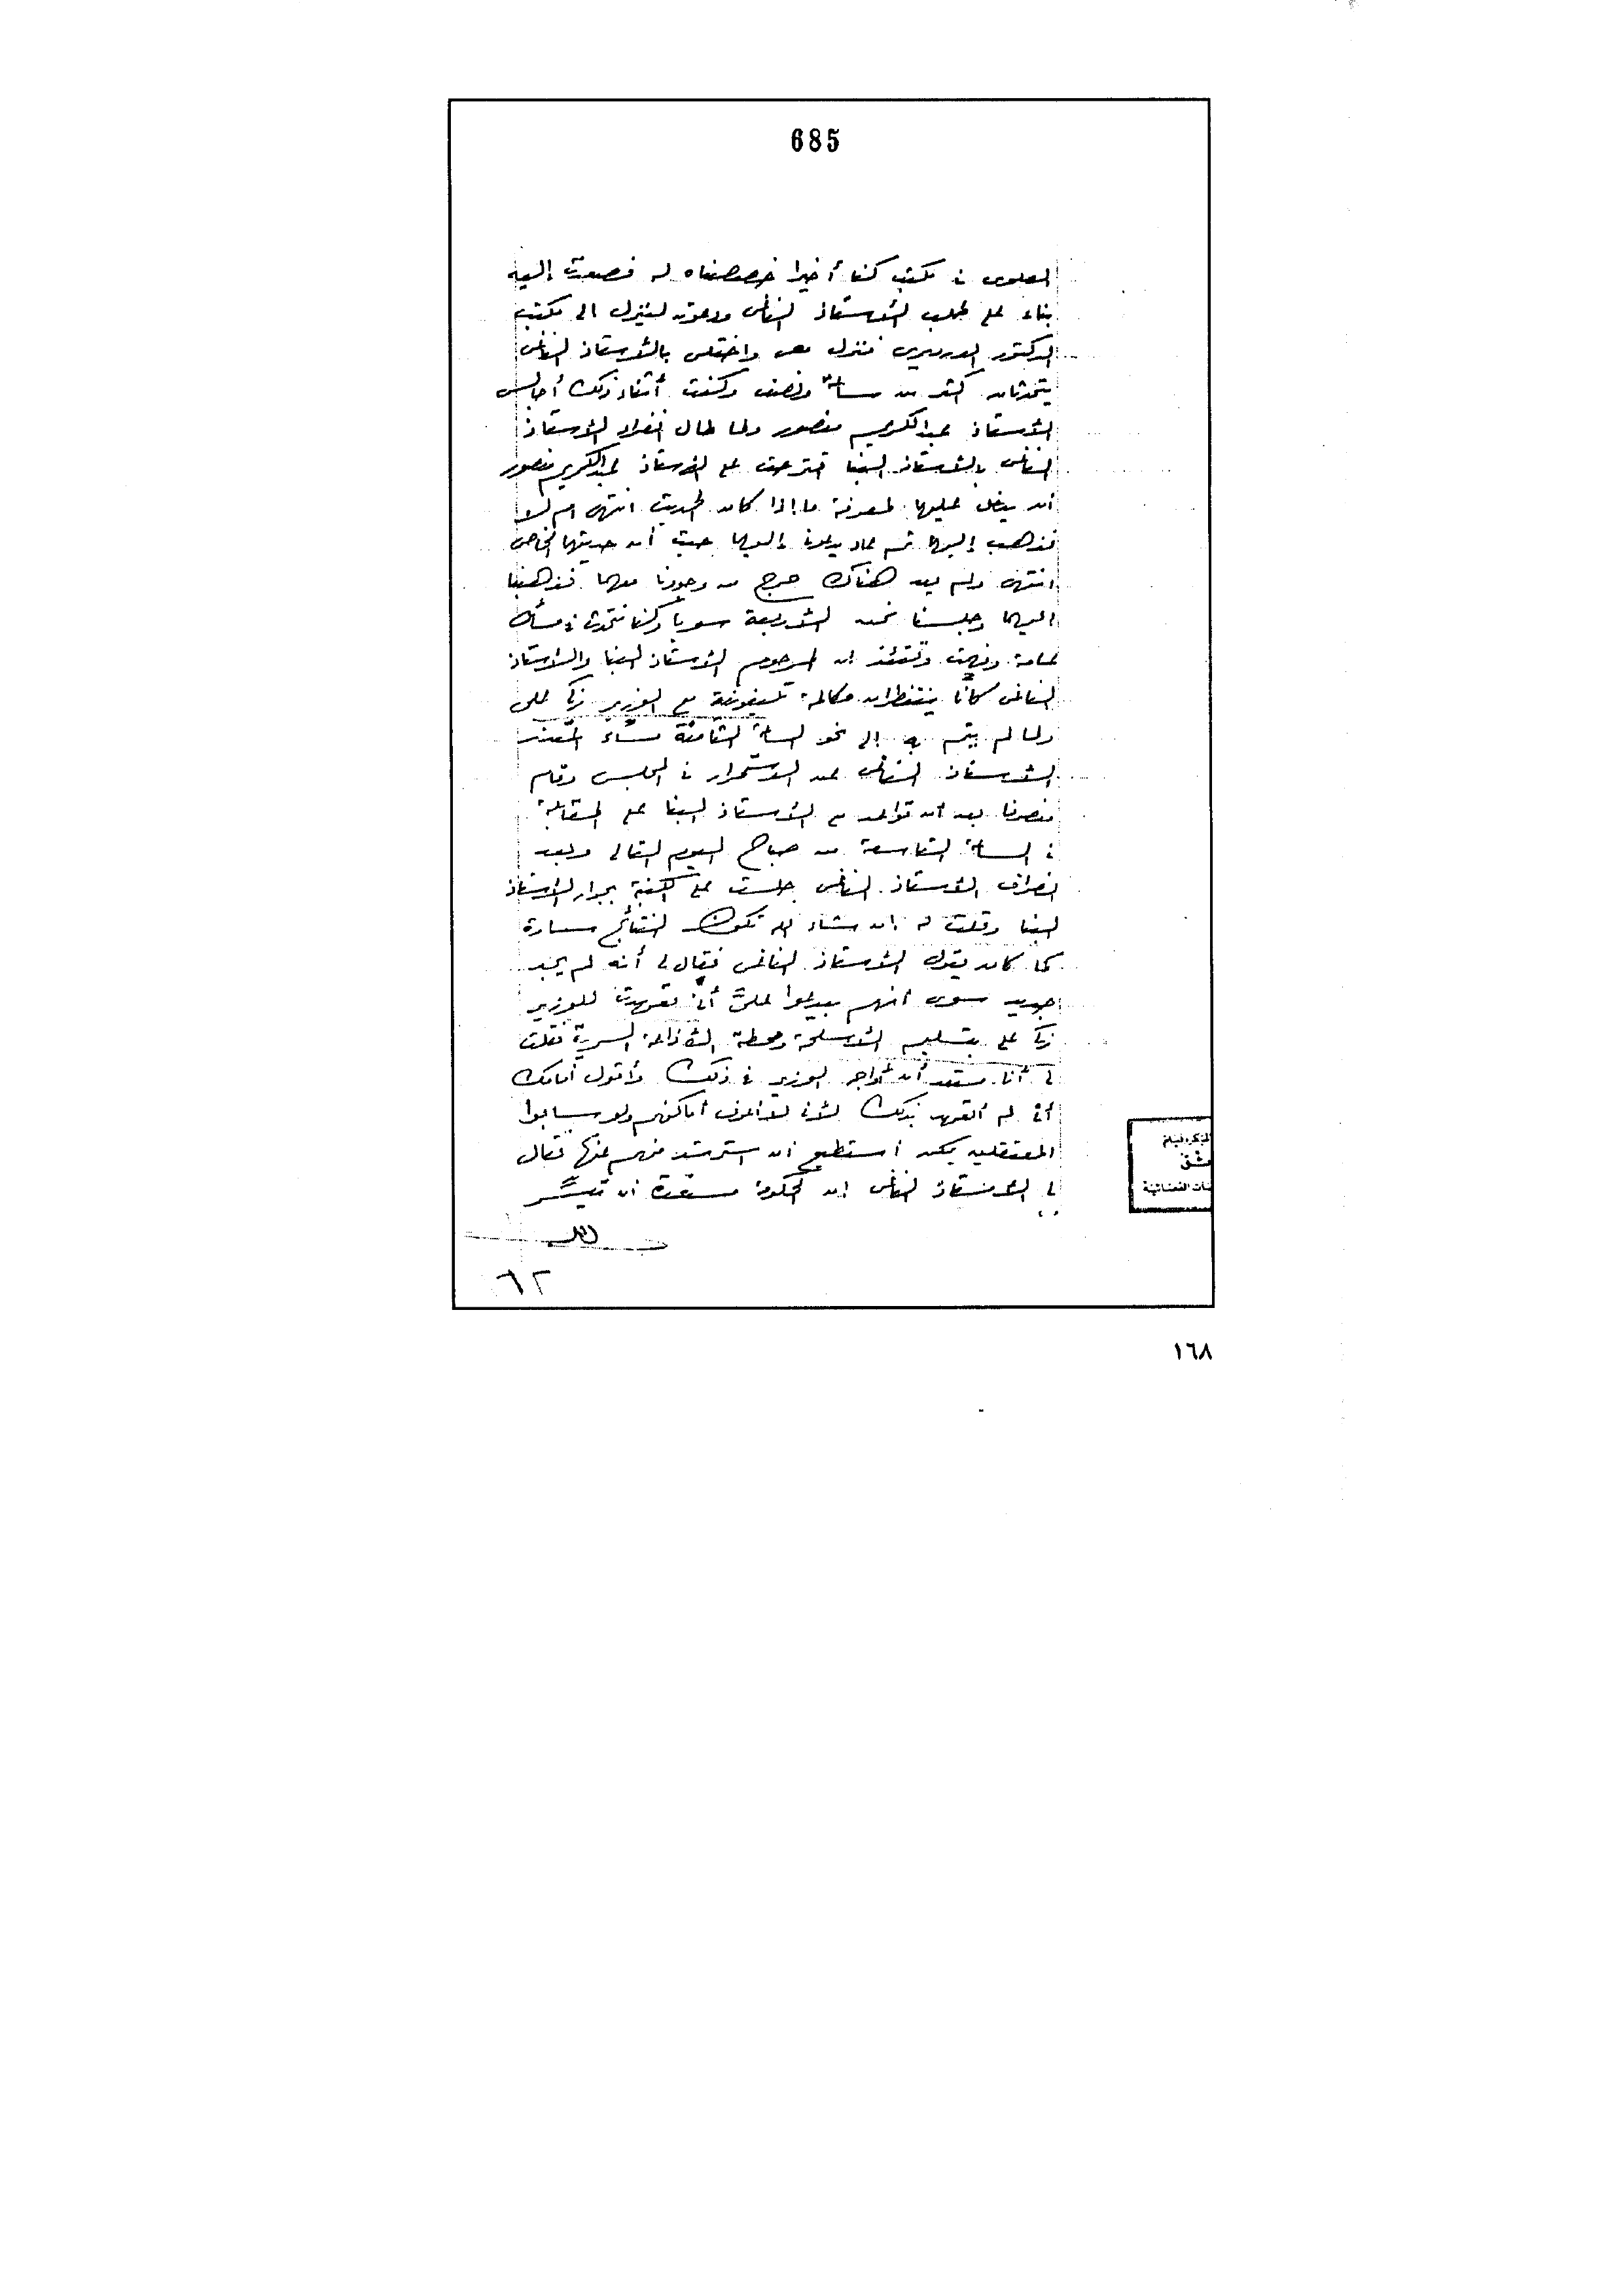 685
العلوى فى مكتب كنا أخيرا خصصناه له فصعدت إليه
بناء على طلب الأستاذ الناغى ودعوته لينزل الى مكتب
الدكتور الدرديرى فنزل معى واختلى بالأستاذ الناغى
يتحدثان أكثر من ساعة ونصف وكنت أثناء ذلك أجالس
الأستاذ عبد الكريم منصور ولما طال انفراد الأستاذ
الناغى بالأستاذ البنا اقترحت على الأستاذ عبد الكريم منصور
أن يدخل عليهما لمعرفة ما إذا كان الحديث انتهى ام لا
فذهب إليهما ثم عاد يدعونى إليهما حيث أن حديثهما الخاص
انتهى ولم يعد هناك حرج من وجودنا معهما فذهبنا
اليهما وجلسنا نحن الأربعة سويا وكنا نتحدث فى مسائل
عامة وفهمت وقتئذ ان المرحوم الأستاذ البنا والأستاذ
الناغى كانا ينتظران مكالمة تليفونية مع الوزير زكى على
ولما لم يتم إلى نحو الساعة الثامنة مساء اعتذر
الأستاذ الناغى عن الاستمرار فى المجلس وقام
منصرفا بعد أن تواعد مع الأستاذ البنا على المقابلة
فى الساعة التاسعة من صباح اليوم التالى وبعد
انصراف الأستاذ الناغى جلست على الكنبة بجوار الأستاذ
البنا وقلت له ان شاء الله تكون النتائج سارة
كما كان يقول الأستاذ الناغى فقال لى أنه لم يجد
جديد سوى انهم يدعوا علىّ أنى تعهدت للوزير
زكى على بتسليم الأسلحة ومحطة الإذاعة السرية فقلت
لى أنا مستعد أن أواجه الوزير فى ذلك وأقول أمامك
أنى لم أتعهد بذلك لأنى لا أعرف أماكنهم ولو سابوا
المعتقلين يمكن استطيع ان استرشد منهم عنها فقال
لى الأستاذ الناغى ان الحكومة مستعدة ان تيسّر
٦٢
دمشق
١٦٨